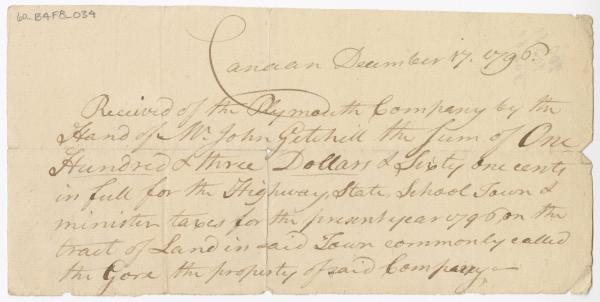 6a_B4F8_034
Canaan December 17. 1796.
Received of the Plymouth Company by the
Hand of Mr John Getchell the sum of One
Hundred & three Dollars & Sixty one cents
in full for the Highway, State, School Town &
minister taxes for the present year 1796 on the
tract of Land in said Town commonly called
the Gore the property of said Company